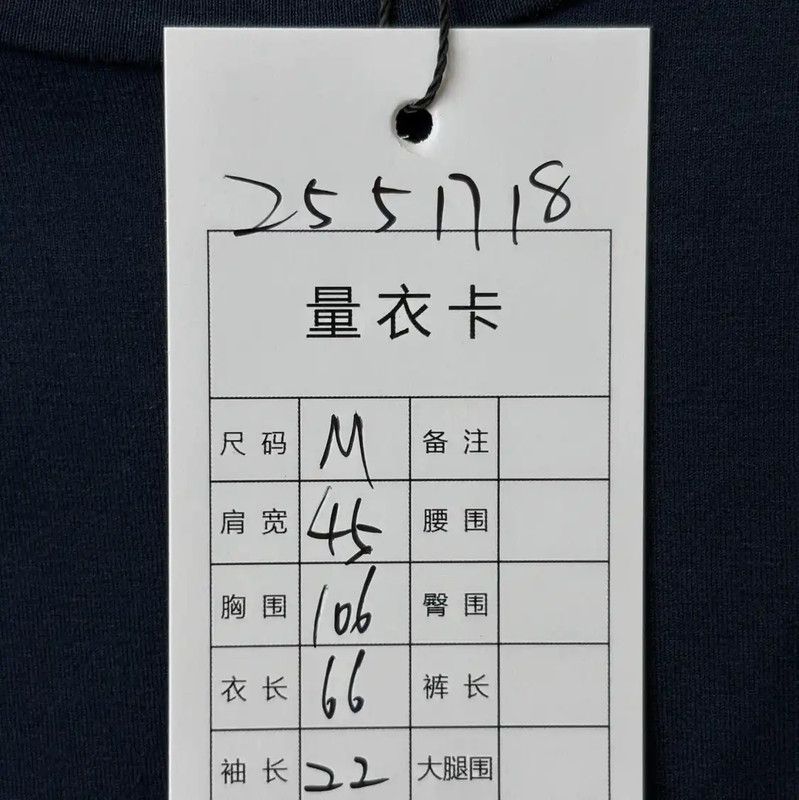 2551718
量衣卡
尺码 M 备注
肩宽 45 腰围
胸围 106 臀围
衣长 66 裤长
袖长 22 大腿围